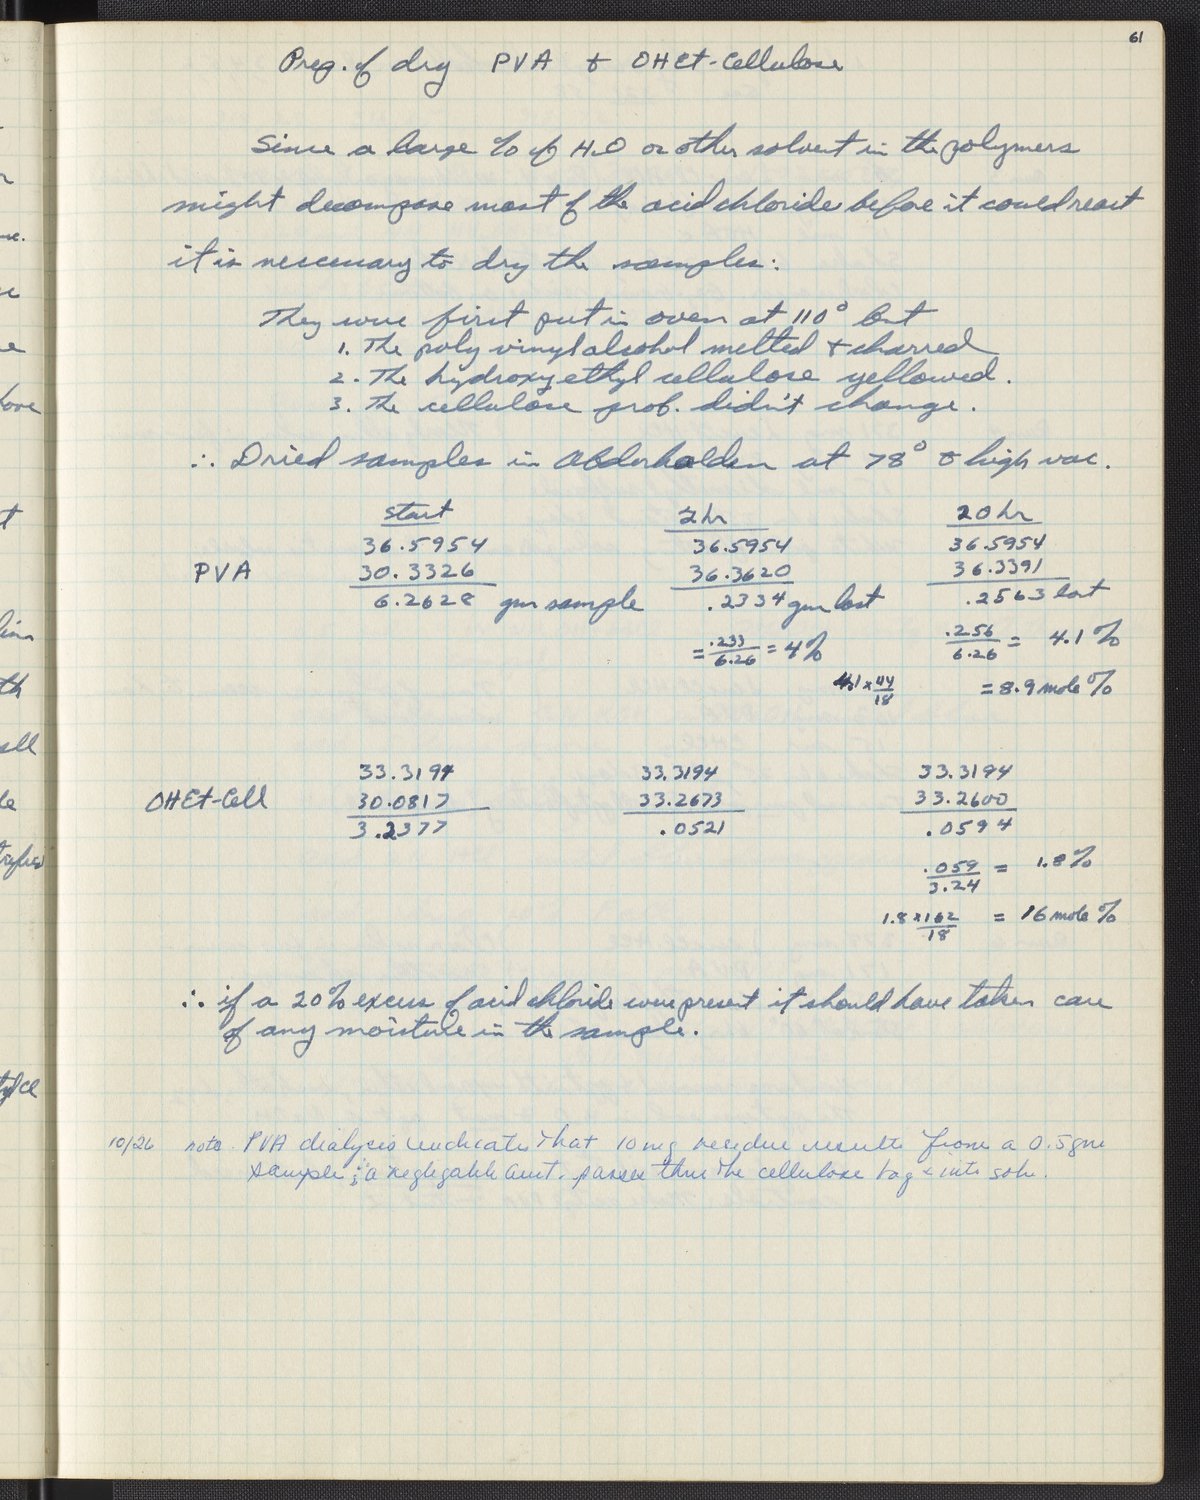 61
Prep. of dry PVA + OHEt-Cellulose
Since a large % of H2O or other solvent in the polymers
might decompose most of the acid chloride before it could react
it is neccessary to dry the samples:
They were first put in oven at 110° but
1. The poly vinyl alcohol melted + charred
2. The hydroxy ethyl cellulose yellowed.
3. The cellulose prob. didn't change.
∴ Dried samples in Abderhalden at 78° & high vac.
start 2 hr 20 hr
36.5954 36.5954 36.5954
PVA 30.3326 36.3620 36.3391
6.2628 gm sample .2334 gm lost .2563 lost
= .233/6.26 = 4% .256/6.26 = 4.1%
4.1 x 44/18 = 8.9 mole %
33.3194 33.3194 33.3194
OHEt-Cell 30.0817 33.2673 33.2600
3.2377 .0521 .0594
.059/3.24 = 1.8%
1.8 x 162/18 = 16 mole %
∴ if a 20% excess of acid chloride were present it should have taken care
of any moisture in the sample.
10/26 note PVA dialysis indicates that 10 mg residue results from a 0.5 gm
sample ∴ a neglegable amt. passes thru the cellulose bag & into soln.